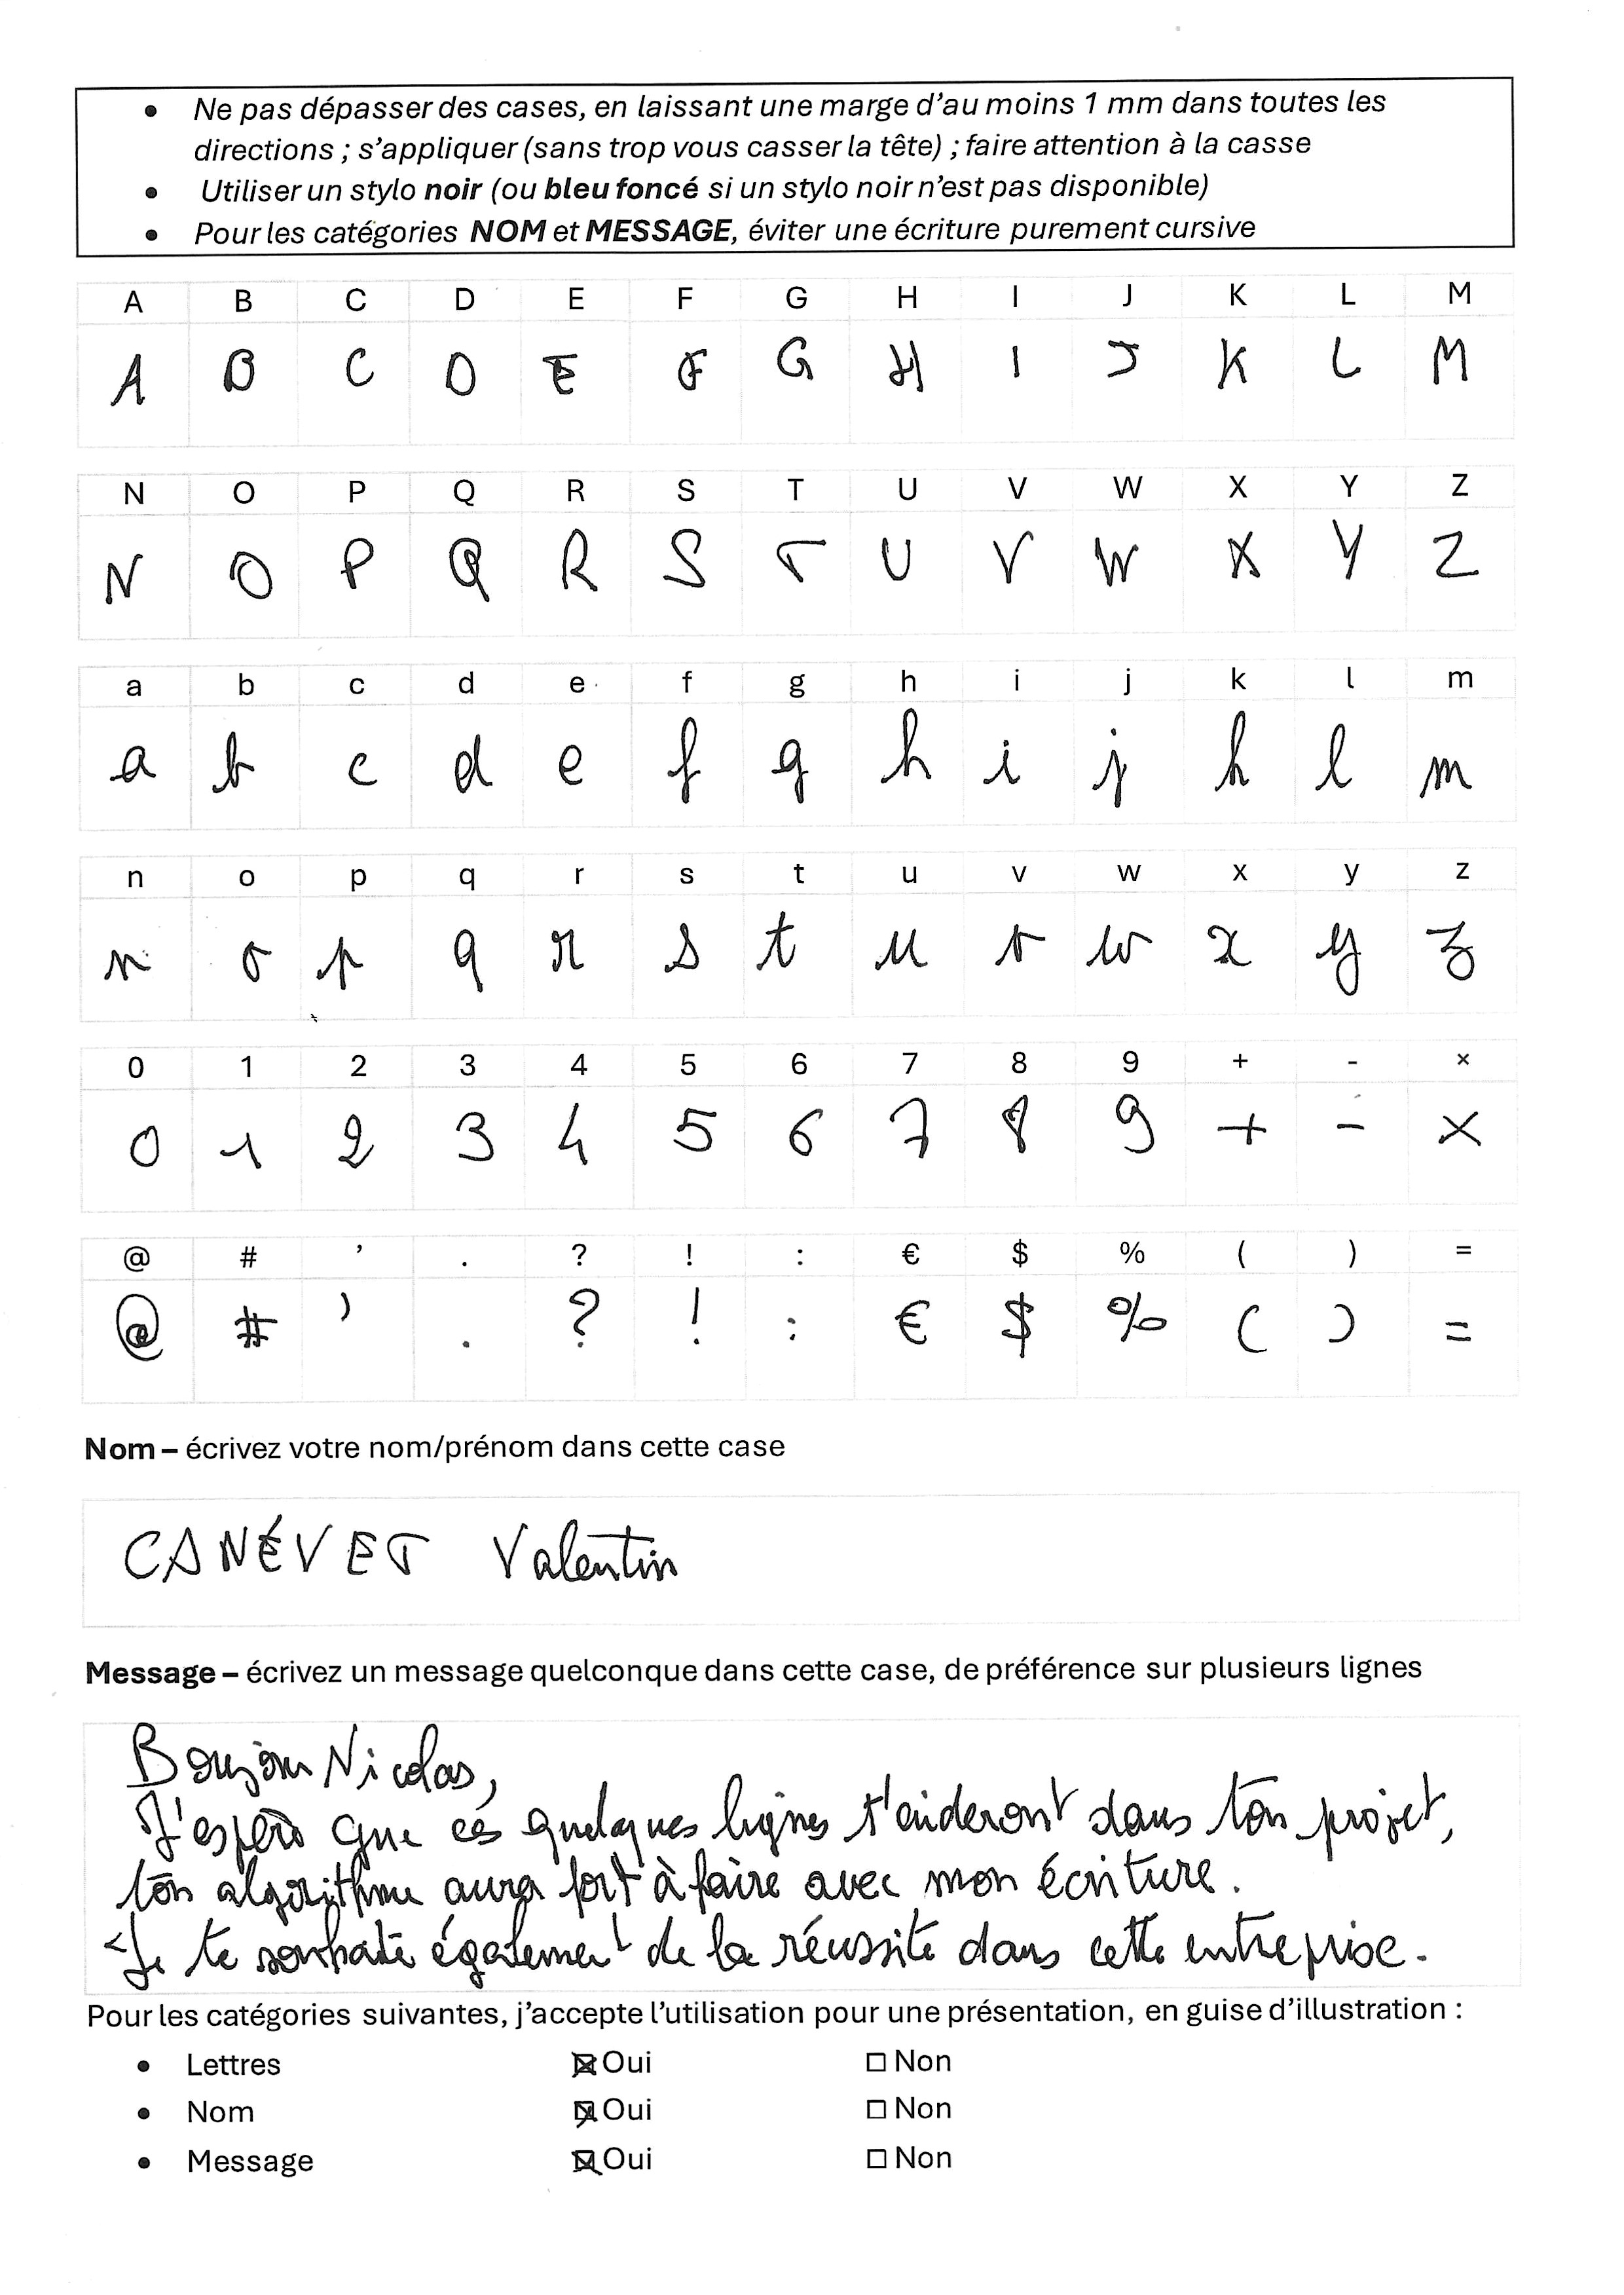 • Ne pas dépasser des cases, en laissant une marge d’au moins 1 mm dans toutes les
directions ; s’appliquer (sans trop vous casser la tête) ; faire attention à la casse
• Utiliser un stylo noir (ou bleu foncé si un stylo noir n’est pas disponible)
• Pour les catégories NOM et MESSAGE, éviter une écriture purement cursive
A B C D E F G H I J K L M
A B C D E F G H I J K L M
N O P Q R S T U V W X Y Z
N O P Q R S T U V W X Y Z
a b c d e f g h i j k l m
a b c d e f g h i j k l m
n o p q r s t u v w x y z
n o p q r s t u v w x y z
0 1 2 3 4 5 6 7 8 9 + - ×
0 1 2 3 4 5 6 7 8 9 + - ×
@ # ’ . ? ! : € $ % ( ) =
@ # ’ . ? ! : € $ % ( ) =
Nom – écrivez votre nom/prénom dans cette case
CANÉVET Valentin
Message – écrivez un message quelconque dans cette case, de préférence sur plusieurs lignes
Bonjour Nicolas,
J'espère que ces quelques lignes t'aideront dans ton projet,
ton algorithme aura fort à faire avec mon écriture.
Je te souhaite également de la réussite dans cette entreprise.
Pour les catégories suivantes, j’accepte l’utilisation pour une présentation, en guise d’illustration :
• Lettres ☒ Oui ☐ Non
• Nom ☒ Oui ☐ Non
• Message ☒ Oui ☐ Non